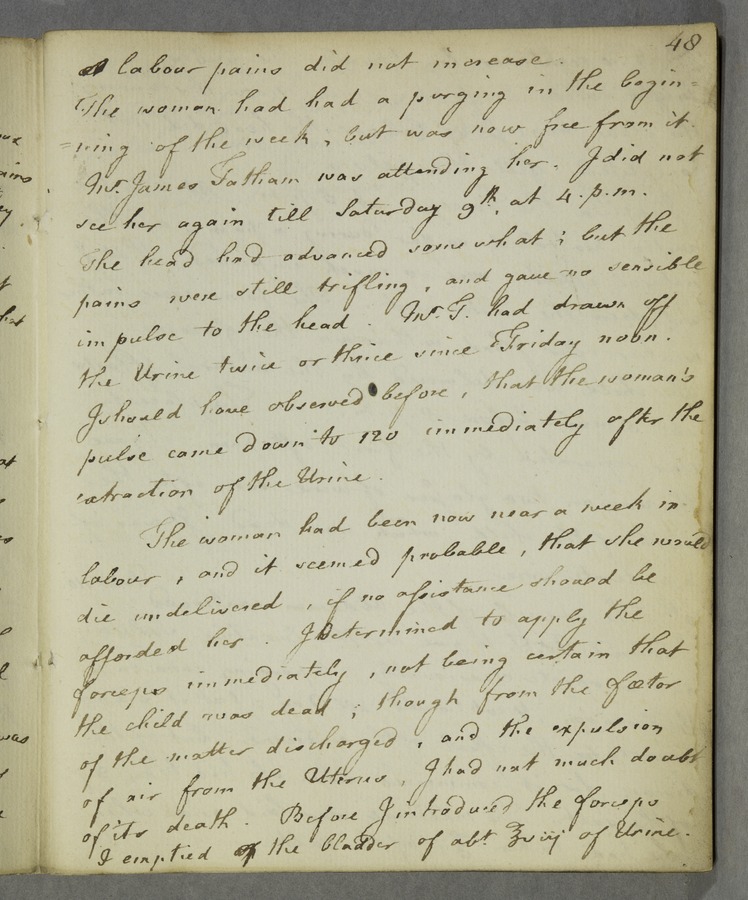 48
labour pains did not increase.
The woman had had a purging in the begin=
=ning of the week, but was now free from it.
Mr. James Tatham was attending her. I did not
see her again till Saturday 9th. at 4. p.m.
The head had advanced somewhat; but the
pains were still trifling, and gave no sensible
impulse to the head. Mr. T. had drawn off
the Urine twice or thrice since Friday noon.
I should have observed before, that the woman's
pulse came down to 120 immediately after the
extraction of the Urine.
The woman had been now near a week in
labour, and it seemed probable, that she would
die undelivered, if no assistance should be
afforded her. I determined to apply the
forceps immediately, not being certain that
the child was dead; though from the fœtor
of the matter discharged, and the expulsion
of air from the Uterus, I had not much doubt
of its death. Before I introduced the forceps
I emptied the bladder of abt. ℥viij of Urine.